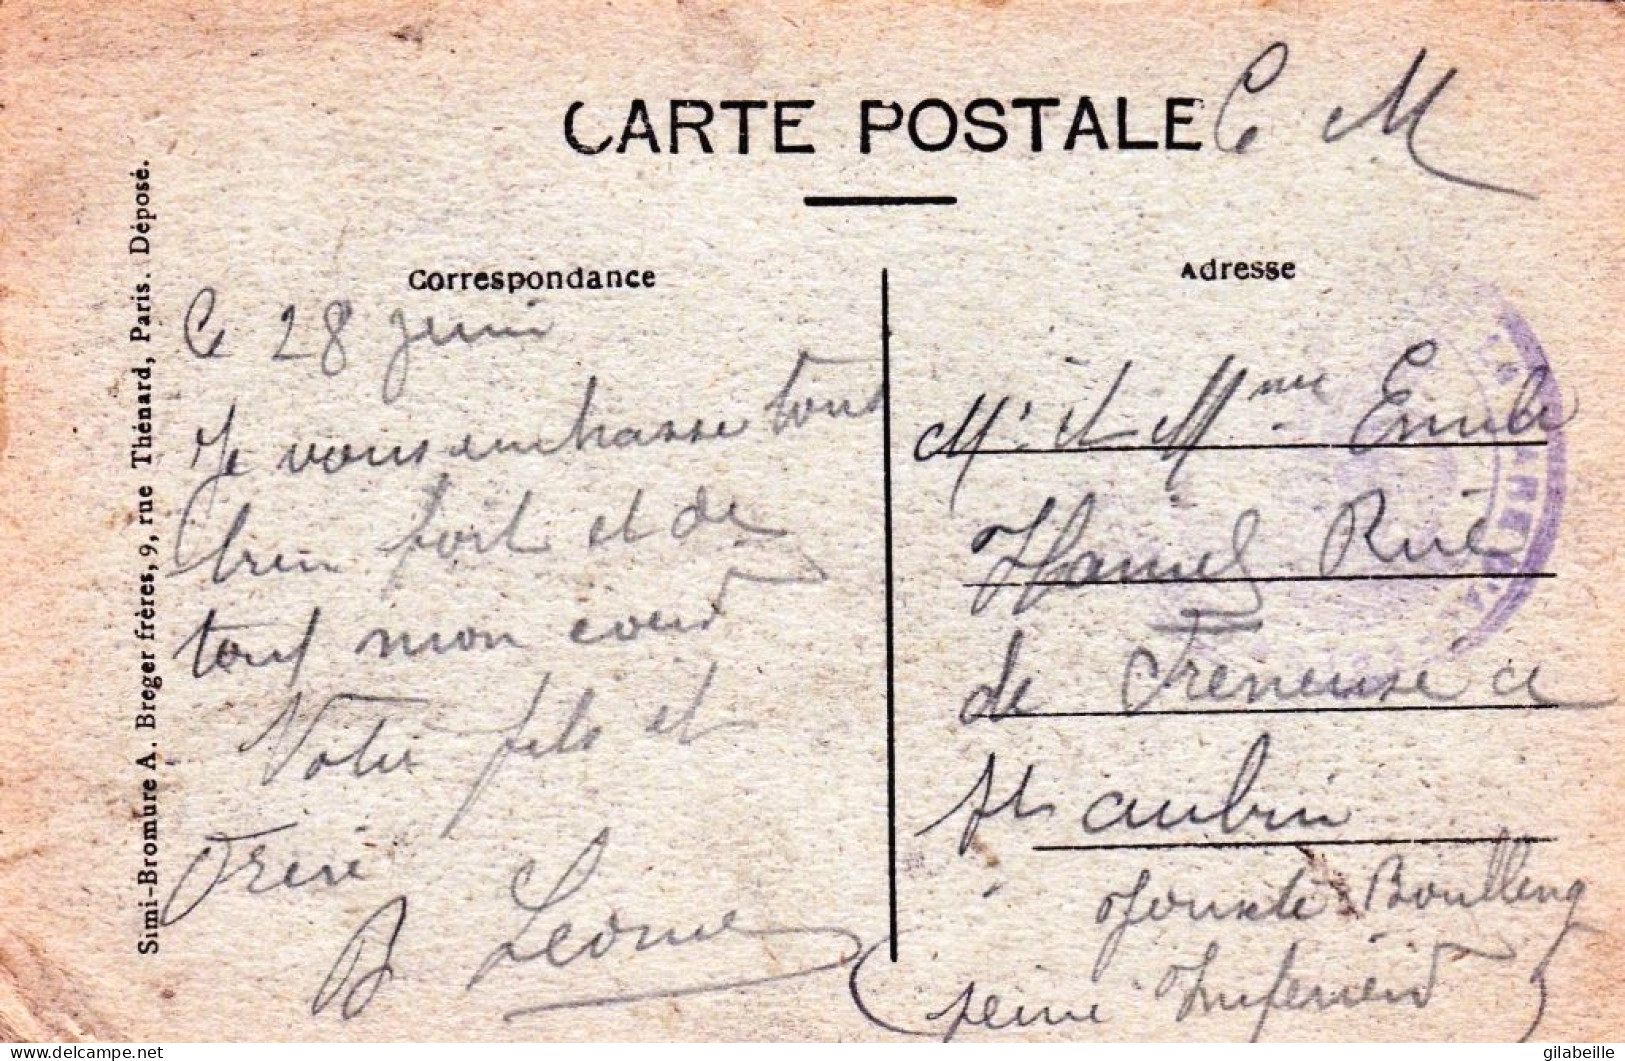 CARTE POSTALE
C M
Simi-Bromure A. Breger frères, 9, rue Thénard, Paris. Déposé.
Correspondance
Le 28 Juin
Je vous embrasse tout
bien fort et de
tout mon coeur
Votre fils et
Frere
B Leonie
Adresse
Mr et Mme Emile
Hamel Rue
de Freneuse a
St aubin
Jouxte Boulleng
(seine Inferieur)
gilabeille